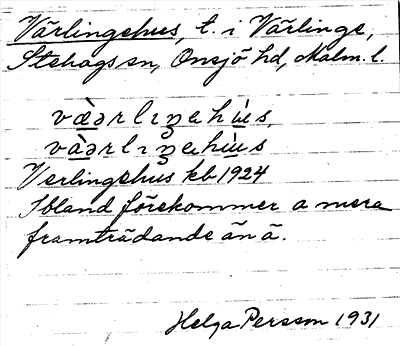 Värlingehus, t. i Värlinge,
Stehags sn, Onsjö hd, Malm. l.
væ̀ərlıŋehú̶s,
vàərlıŋehùs
Verlingehus kb 1924
Ibland förekommer a mera
framträdande än ä.
Helga Persson 1931